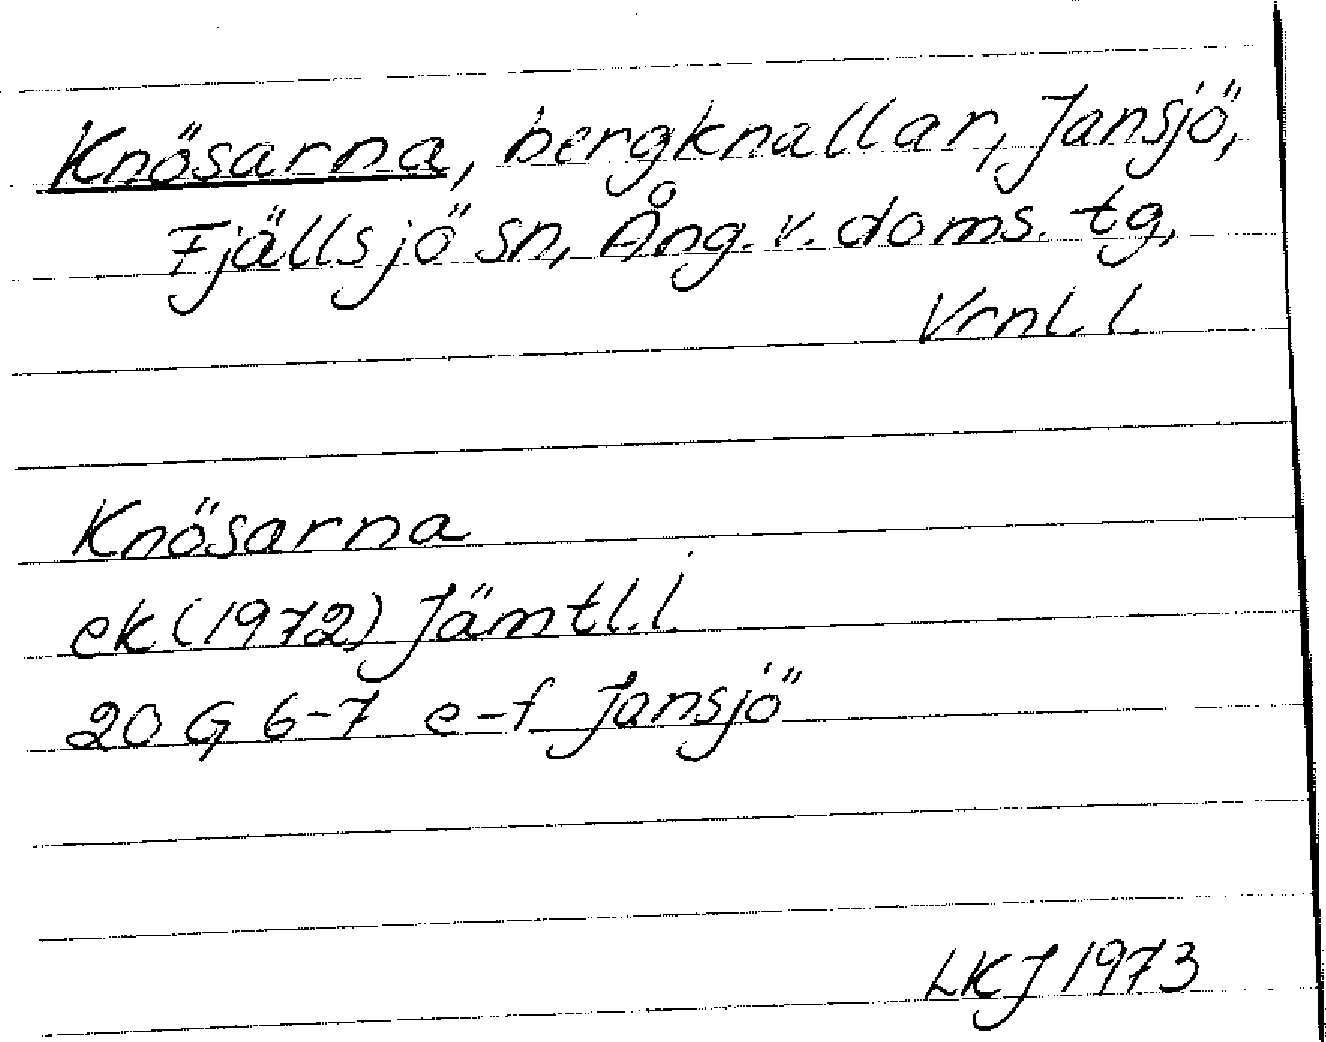 Knösarna, bergknallar, Jansjö,
Fjällsjö sn, Ång. v. doms. tg,
Vrnl. l.
Knösarna
ek (1972) Jämtl. l.
20 G 6-7 e-f Jansjö
LKJ 1973